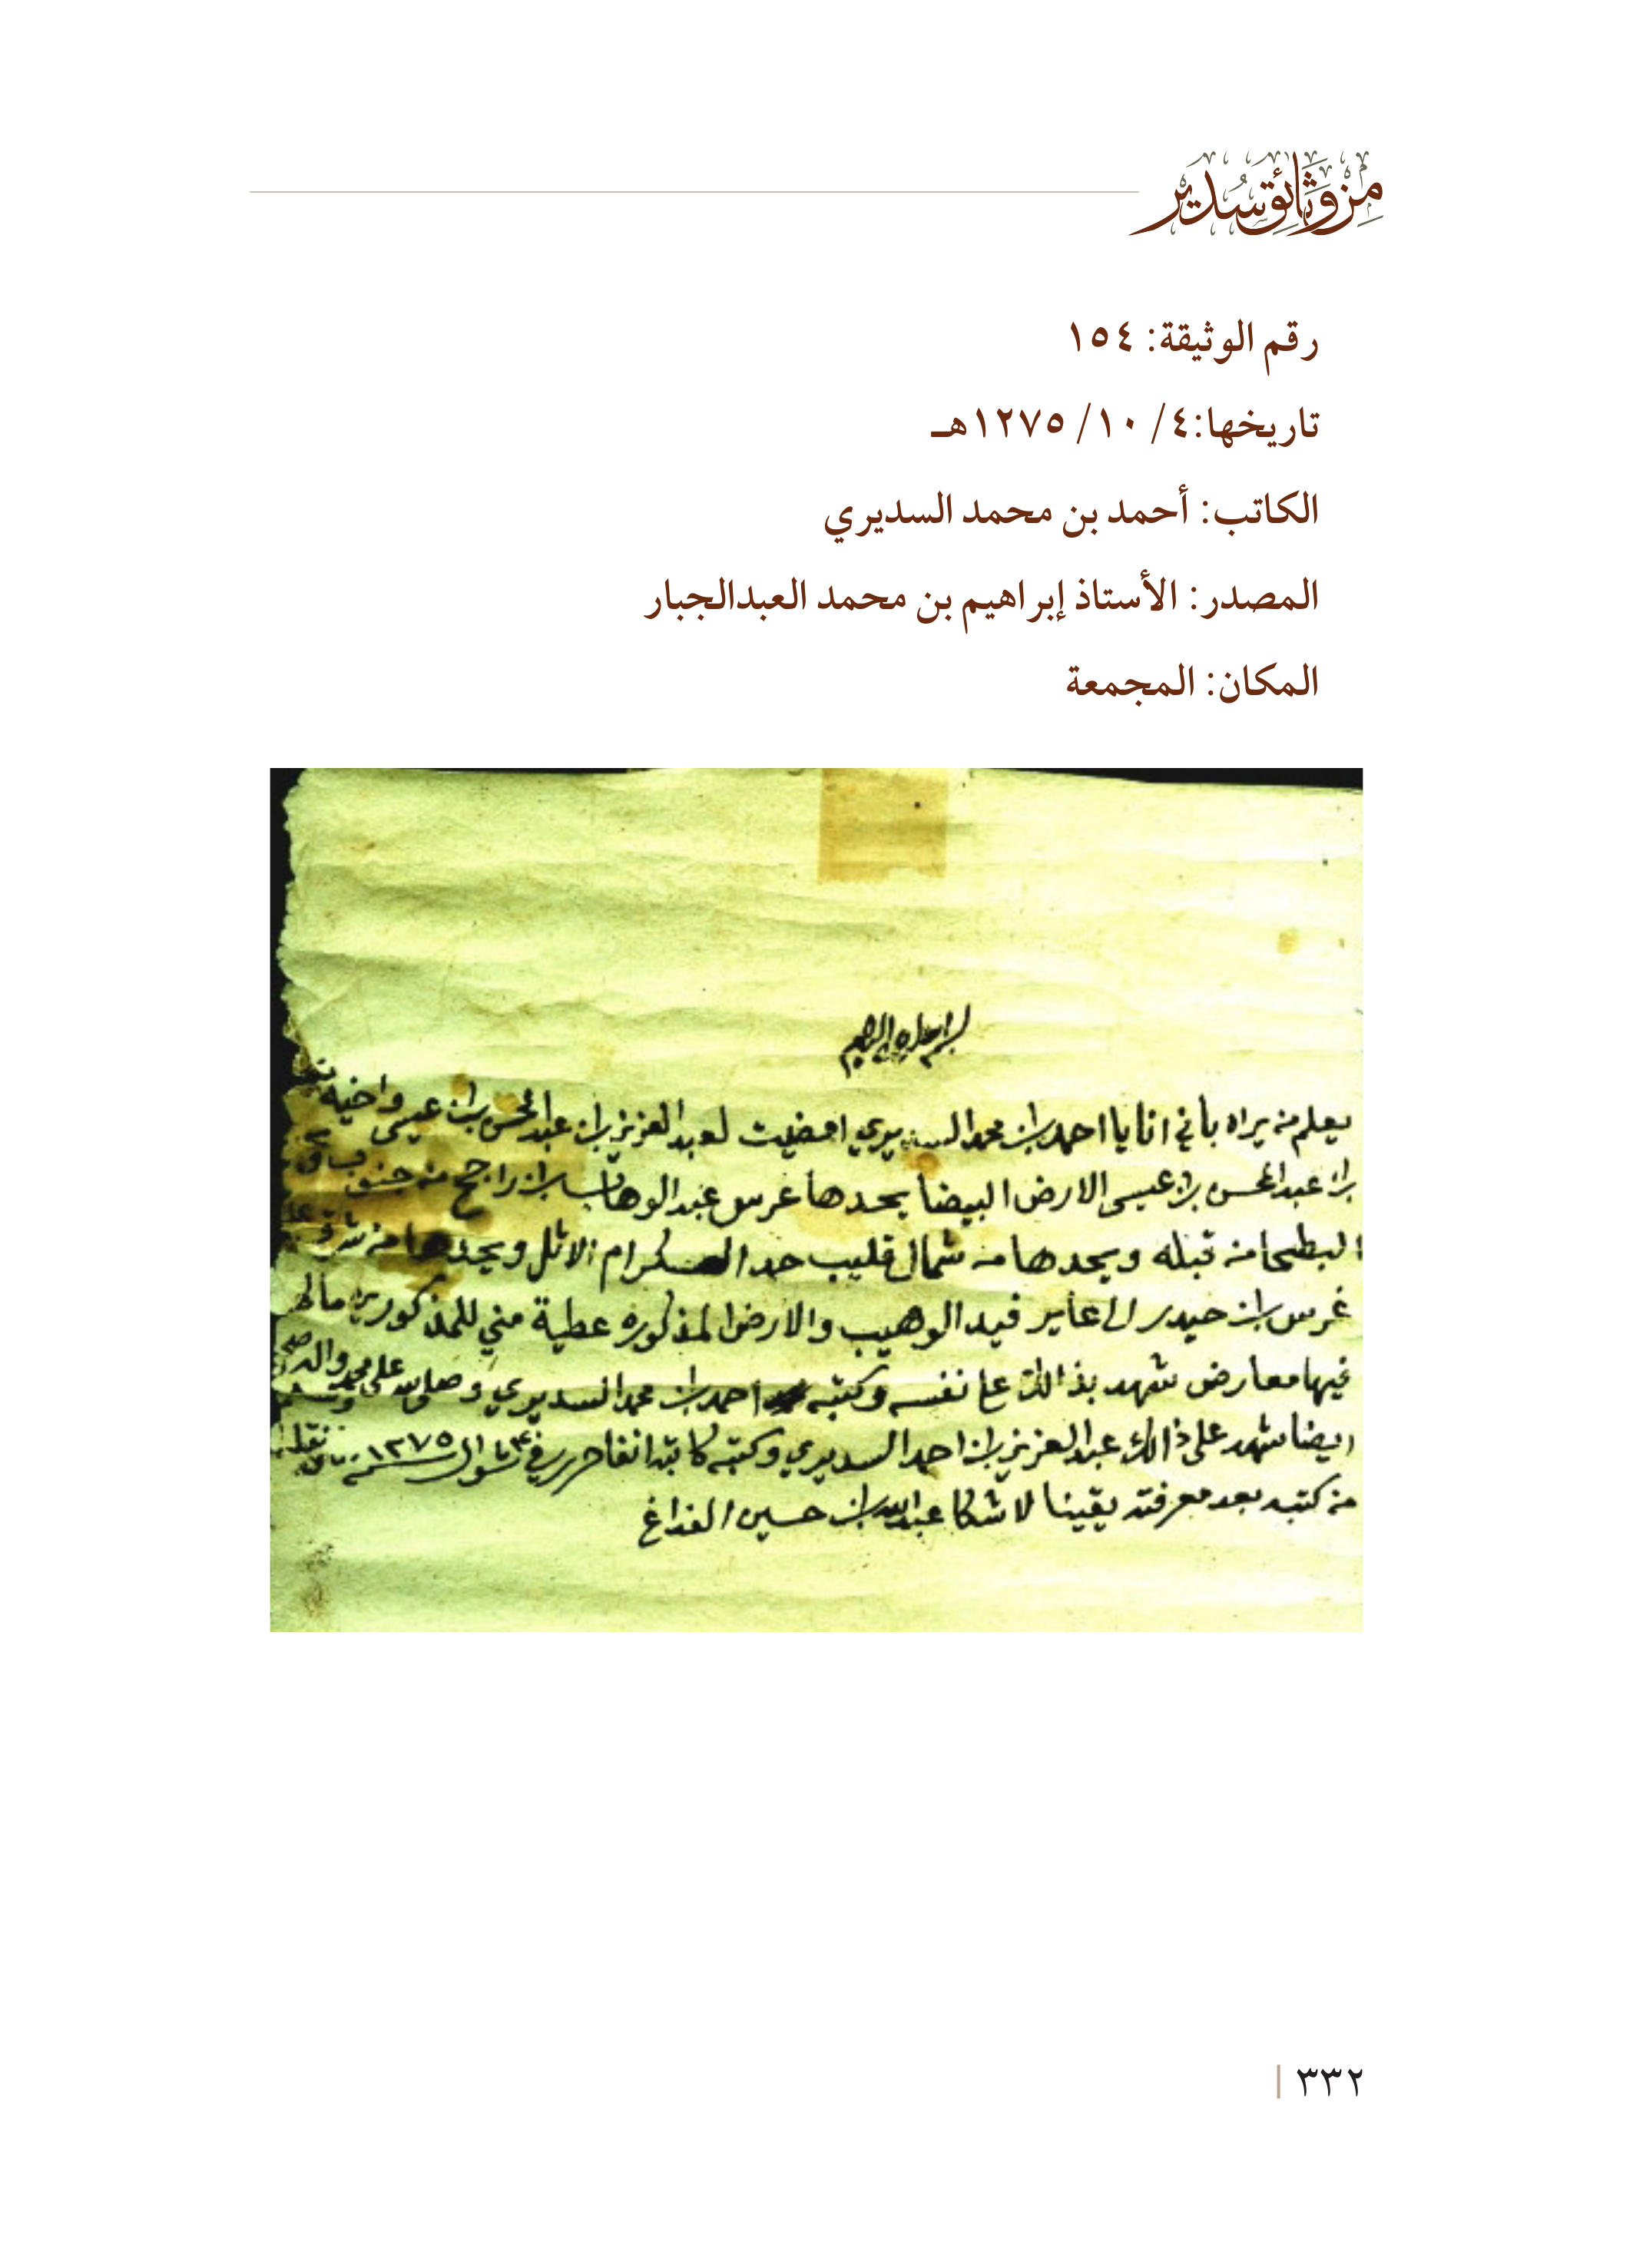 من وثائق سدير
رقم الوثيقة: ١٥٤
تاريخها:٤/ ١٠/ ١٢٧٥هـ
الكاتب: أحمد بن محمد السديري
المصدر: الأستاذ إبراهيم بن محمد العبدالجبار
المكان: المجمعة
بسم الله الرحمن الرحيم
يعلم من يراه بأني انا يا احمد ابن محمد السديري امضيت لعبد العزيز ابن عبد المحسن ابن عيسى واخيه
ابن عبد المحسن ابن عيسى الارض البيضا يحدها غرس عبد الوهاب ابن راجح من جنوب
البطحا من قبله ويحدها من شمال قليب حد ام الاثل ويحدها من شرق
غرس ابن حيدر الى عاير قيد الوهيب والارض المذكوره عطية مني للمذكورين مالهم
فيها معارض شهد بذالك على نفسه وكتبه احمد ابن محمد السديري وصلى الله على محمد واله وصحبه وسلم
ايضا شهد على ذالك عبد العزيز ابن احمد السديري وكتبه كاتبه انفا حرر في ٤ شوال سنة ١٢٧٥ نقله
من كتبه بعد معرفته يقينا لا شكا عبد الله ابن حسين الفداغ
٣٣٢